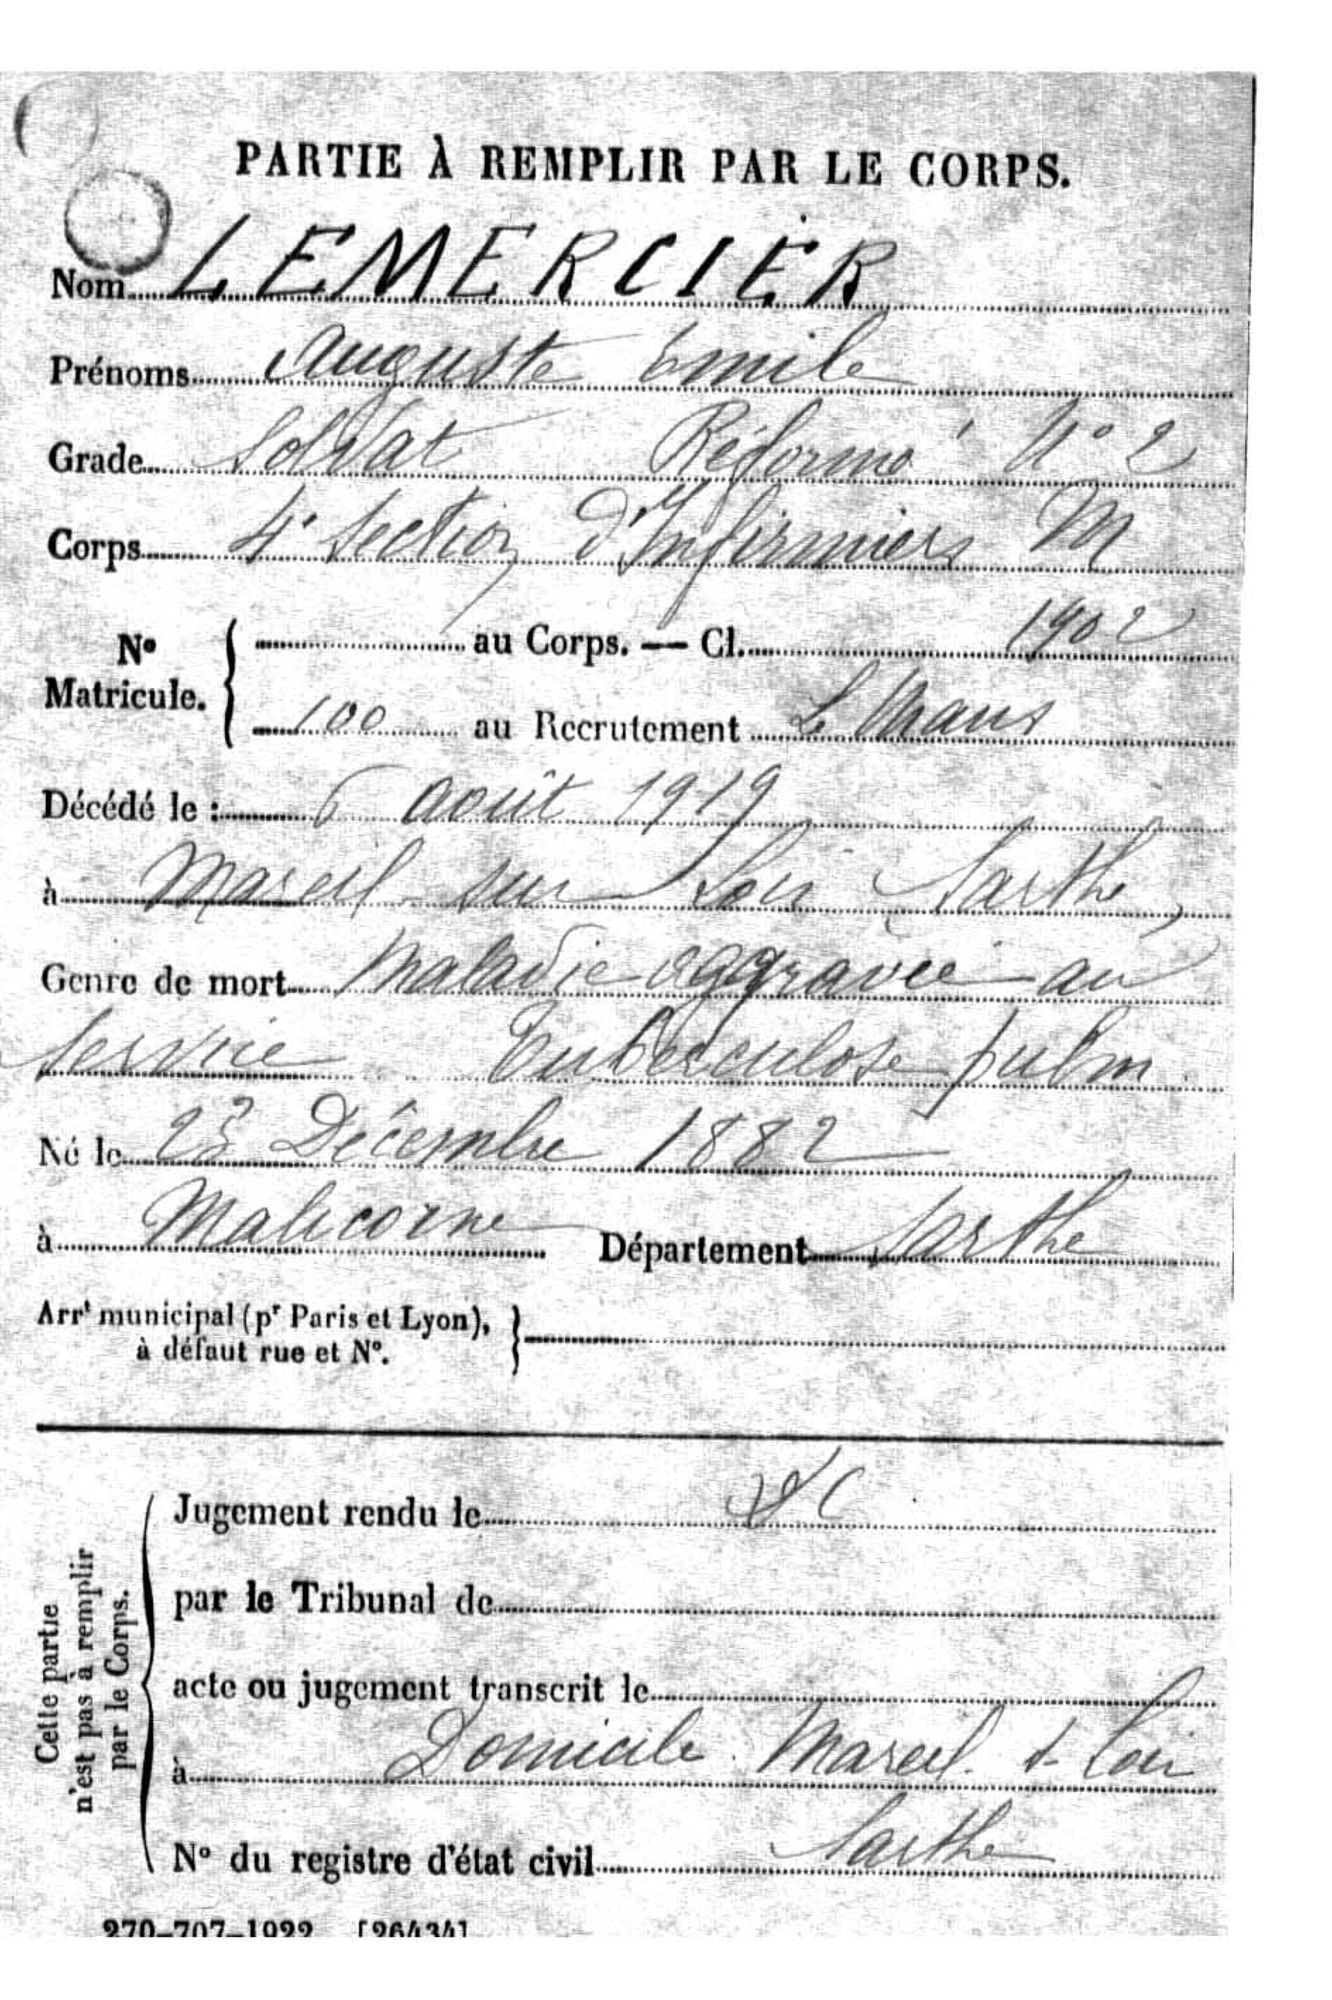 PARTIE À REMPLIR PAR LE CORPS.
Nom LEMERCIER
Prénoms Auguste Emile
Grade Soldat Réformé N° 2
Corps 4e Section d'Infirmiers M
No Matricule. { au Corps. — Cl. 1902
100 au Recrutement Le Mans
Décédé le : 6 août 1919
à Mareil sur Loir Sarthe,
Genre de mort Maladie aggravée au
service Tuberculose pulm
Né le 23 Décembre 1882
à Malicorne Département Sarthe
Arrt municipal (pr Paris et Lyon), }
à défaut rue et No.
Cette partie
n'est pas à remplir
par le Corps.
Jugement rendu le
par le Tribunal de
acte ou jugement transcrit le
à Domicile Mareil s- Loir
Sarthe
No du registre d'état civil
270-707-1922 [26434]